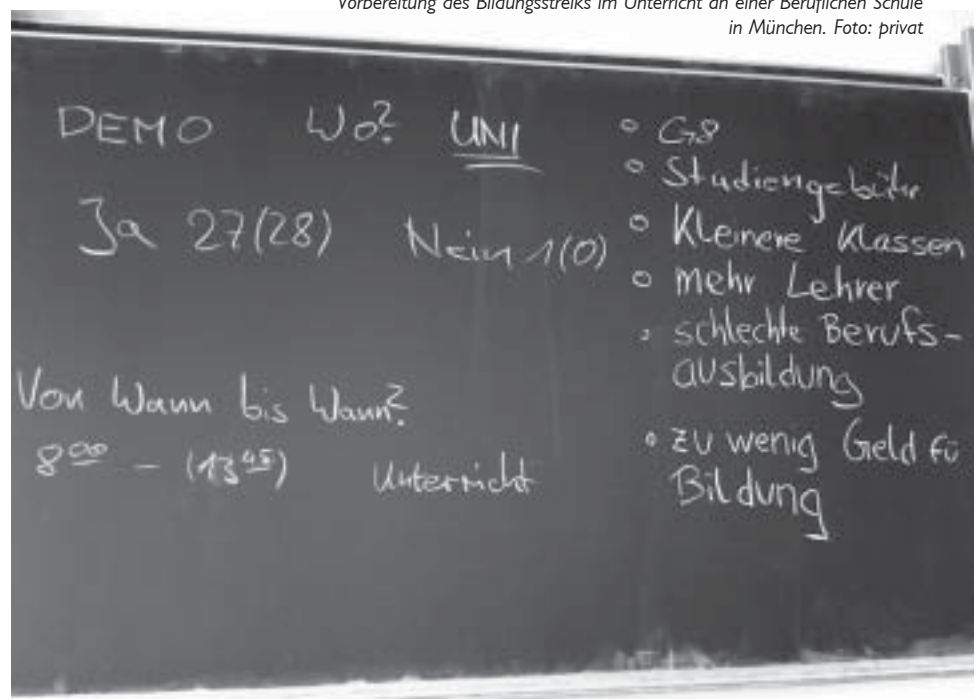 Vorbereitung des Bildungsstreiks im Unterricht an einer Beruflichen Schule
in München. Foto: privat
DEMO Wo? UNI
Ja 27(28) Nein 1(0)
Von Wann bis Wann?
8 00 – (13 45) Unterricht
° G8
° Studiengebühr
° Kleinere Klassen
° mehr Lehrer
° schlechte Berufs-
ausbildung
° zu wenig Geld fü
Bildung